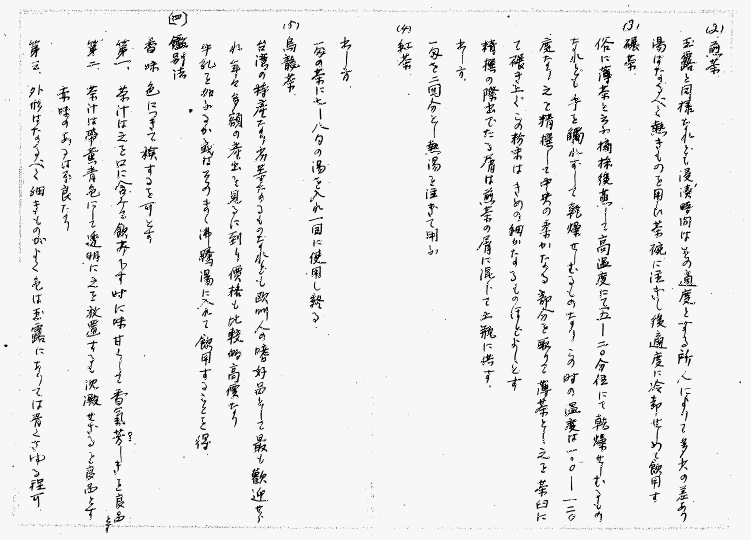 (2) 煎茶
玉露と同様なれども浸漬時間はその適度とする所人によりて多少の差あり
湯はなるべく熱きものを用ひ茶碗に注ぎし後適度に冷却せしめて飲用す
(3) 碾茶
俗に薄茶と云ふ摘採後蒸して高温度にて五―二〇分位にて乾燥せしむるもの
なれども手を觸れずして乾燥せしむるものなりこの時の温度は一〇〇―一二〇
度なり之を精撰して中央の柔かなる部分を取りて薄茶とし之を茶臼に
て碾き上ぐこの粉末はきめの細かなるものほどよしとす
精撰の際出でたる屑は煎茶の屑に混じて土瓶に供す。
出し方。
一匁を二回分とし熱湯を注ぎて用ふ
(4) 紅茶
出し方
一匁の茶に七―八勺の湯を入れ一回に使用し終る
(5) 烏龍茶
台湾の特産なり芳華なるものなれども欧州人の嗜好品として最も歡迎せら
れ年々多額の産出を見るに到り價格も比較的高價なり
牛乳を加ふるか或はそのまゝ沸騰湯に入れて飲用することを得
[四] 鑑別法
香味色につきて検するを可とす
第一 茶汁は之を口に含みて飲み下す時に味甘くして香氣芳しきを良品とす
第二 茶汁は帶黄青色にして透明に之を放置するも沈澱せざるを良品とす
赤味のあるは不良なり
第三 外形はなるべく細きものがよく色は玉露にありては青くさゆる程可